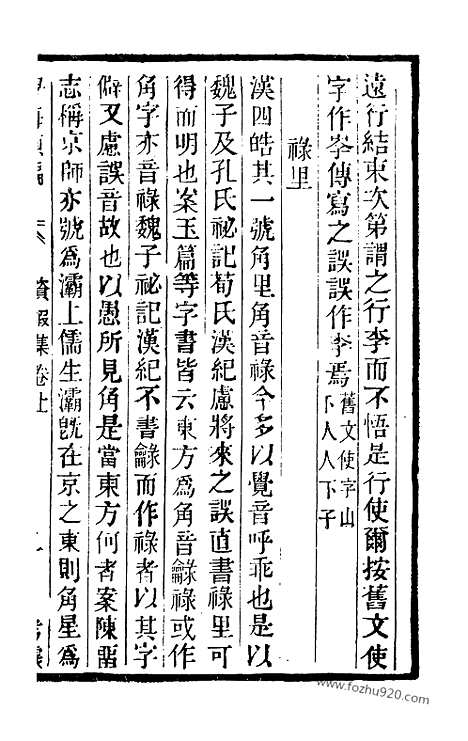 遠行結束次第謂之行李而不悟是行使爾按舊文使
字作㞿傳寫之誤誤作李焉舊文使字山下人人下子
祿里
漢四皓其一號角里角音祿今多以覺音呼乖也是以
魏子及孔氏祕記荀氏漢紀慮將來之誤直書祿里可
得而明也案玉篇等字書皆云東方為角音龣祿或作
角字亦音祿魏子祕記漢紀不書龣而作祿者以其字
僻又慮誤音故也以愚所見角是當東方何者案陳留
志稱京師亦號為灞上儒生灞既在京之東則角星為
資暇集卷上
www.fozhu920.com